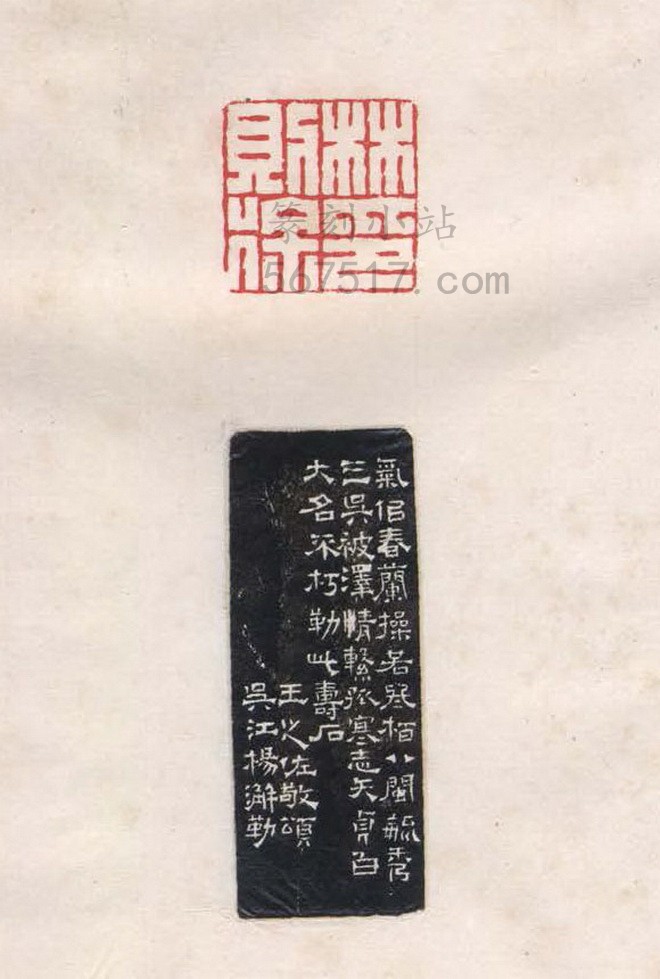 林印
則徐
篆刻小站
567517.com
氣佀春蘭操若栢八閩毓秀
三吳被澤情繫孤寒志矢貞白
大名不朽勒此壽石
王之佐敬頌
吳江楊澥勒